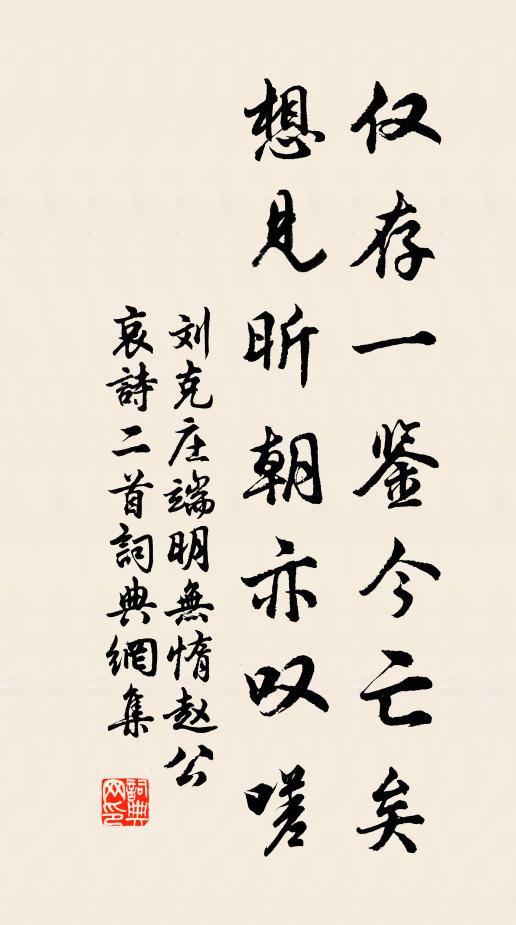 仅存一鉴今亡矣
想见昕朝亦叹嗟
刘克庄端明無惰赵公
哀詩二首詞典網集
詞典网印